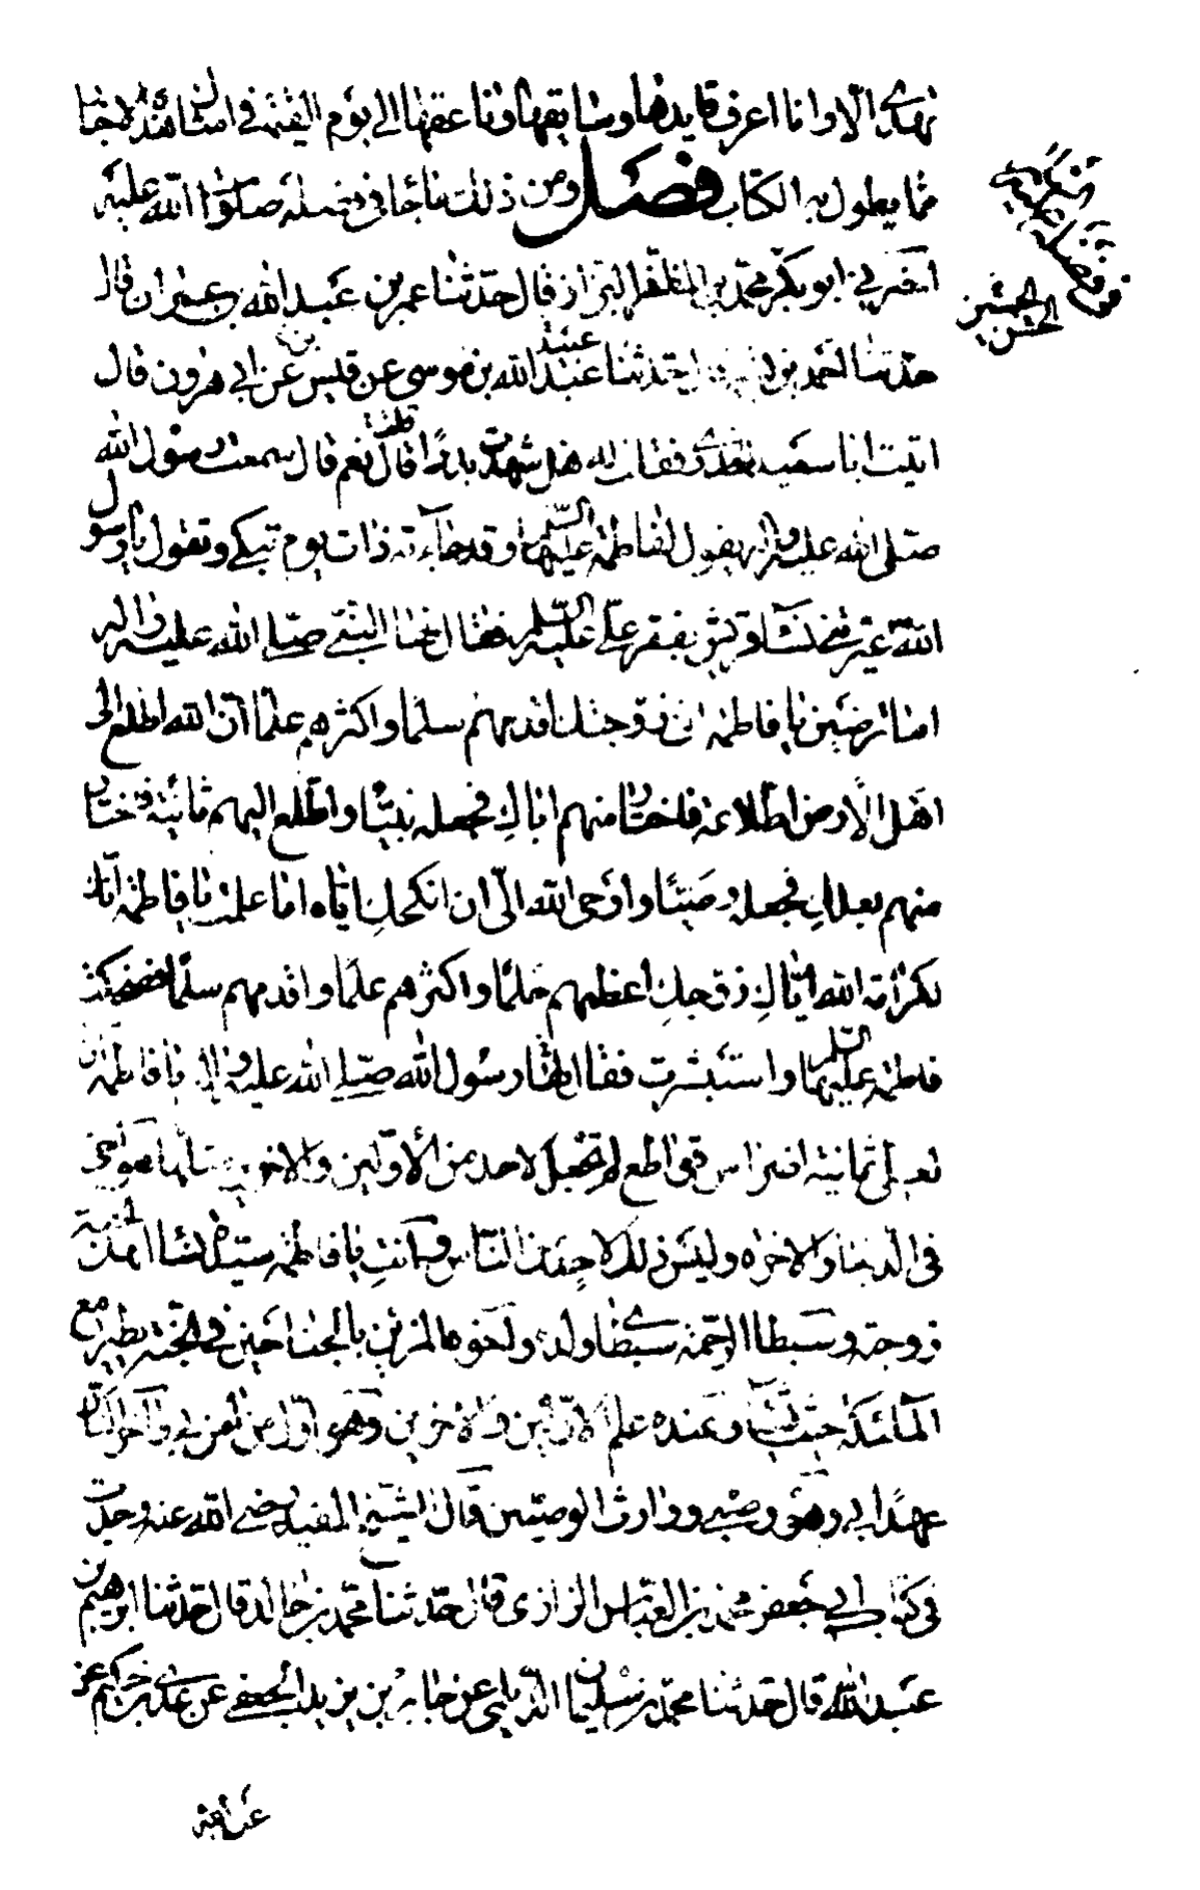 تهدي الا وانا اعرف قايدها وسايقها وناعقها الى يوم القيمة في امثال هذه الاخبار
مما يطول به الكتاب فصل ومن ذلك ما جا في فضله صلوات الله عليه
اخبرني ابو بكر محمد بن المظفر البزاز قال حدثنا عمر بن عبد الله بن عمران قال
حدثنا احمد بن حدثنا عبيد الله بن موسى عن قيس عن ابي هرون قال
اتيت ابا سعيد الخدري فقلت له هل شهدت بدرا قال نعم قال سمعت رسول الله
صلى الله عليه واله يقول لفاطمة عليها السلم وقد جاءته ذات يوم تبكي وتقول يا رسول
الله عيرتني نساء قريش بفقر علي عليه السلم فقال لها النبي صلى الله عليه واله
اما ترضين يا فاطمة اني زوجتك اقدمهم سلما واكثرهم علما ان الله اطلع الى
اهل الارض اطلاعة فاختار منهم اباك فجعله نبيا واطلع اليهم ثانية فاختار
منهم بعلك فجعله وصيا واوحى الله الي ان انكحك اياه اما علمت يا فاطمة انك
لكرامة الله اياك زوجك اعظمهم حلما واكثرهم علما واقدمهم سلما فضحكت
فاطمة عليها السلم واستبشرت فقال لها رسول الله صلى الله عليه واله يا فاطمة ان
لعلي ثمانية اضراس قواطع لم تجعل لاحد من الاولين والاخرين هو اخي
في الدنيا والاخره وليس ذلك لاحد من الناس وانت يا فاطمة سيدة نساء اهل الجنة
زوجته وسبطا الرحمة سبطاي ولده واخوه المزين بالجناحين في الجنة يطير مع
الملئكة حيث يشاء وعنده علم الاولين والاخرين وهو اول من امن بي واخر الناس
عهدا بي وهو وصيي ووارث الوصيين قال الشيخ المفيد رضي الله عنه وجدت
في كتاب ابي جعفر محمد بن العباس الرازي قال حدثنا محمد بن خالد قال حدثنا ابرهيم بن
عبد الله قال حدثنا محمد بن سليمان الديلمي عن جابر بن يزيد الجعفي عن عدي بن حكيم عن
في فضل
الحسن
الحسين
عبد الله